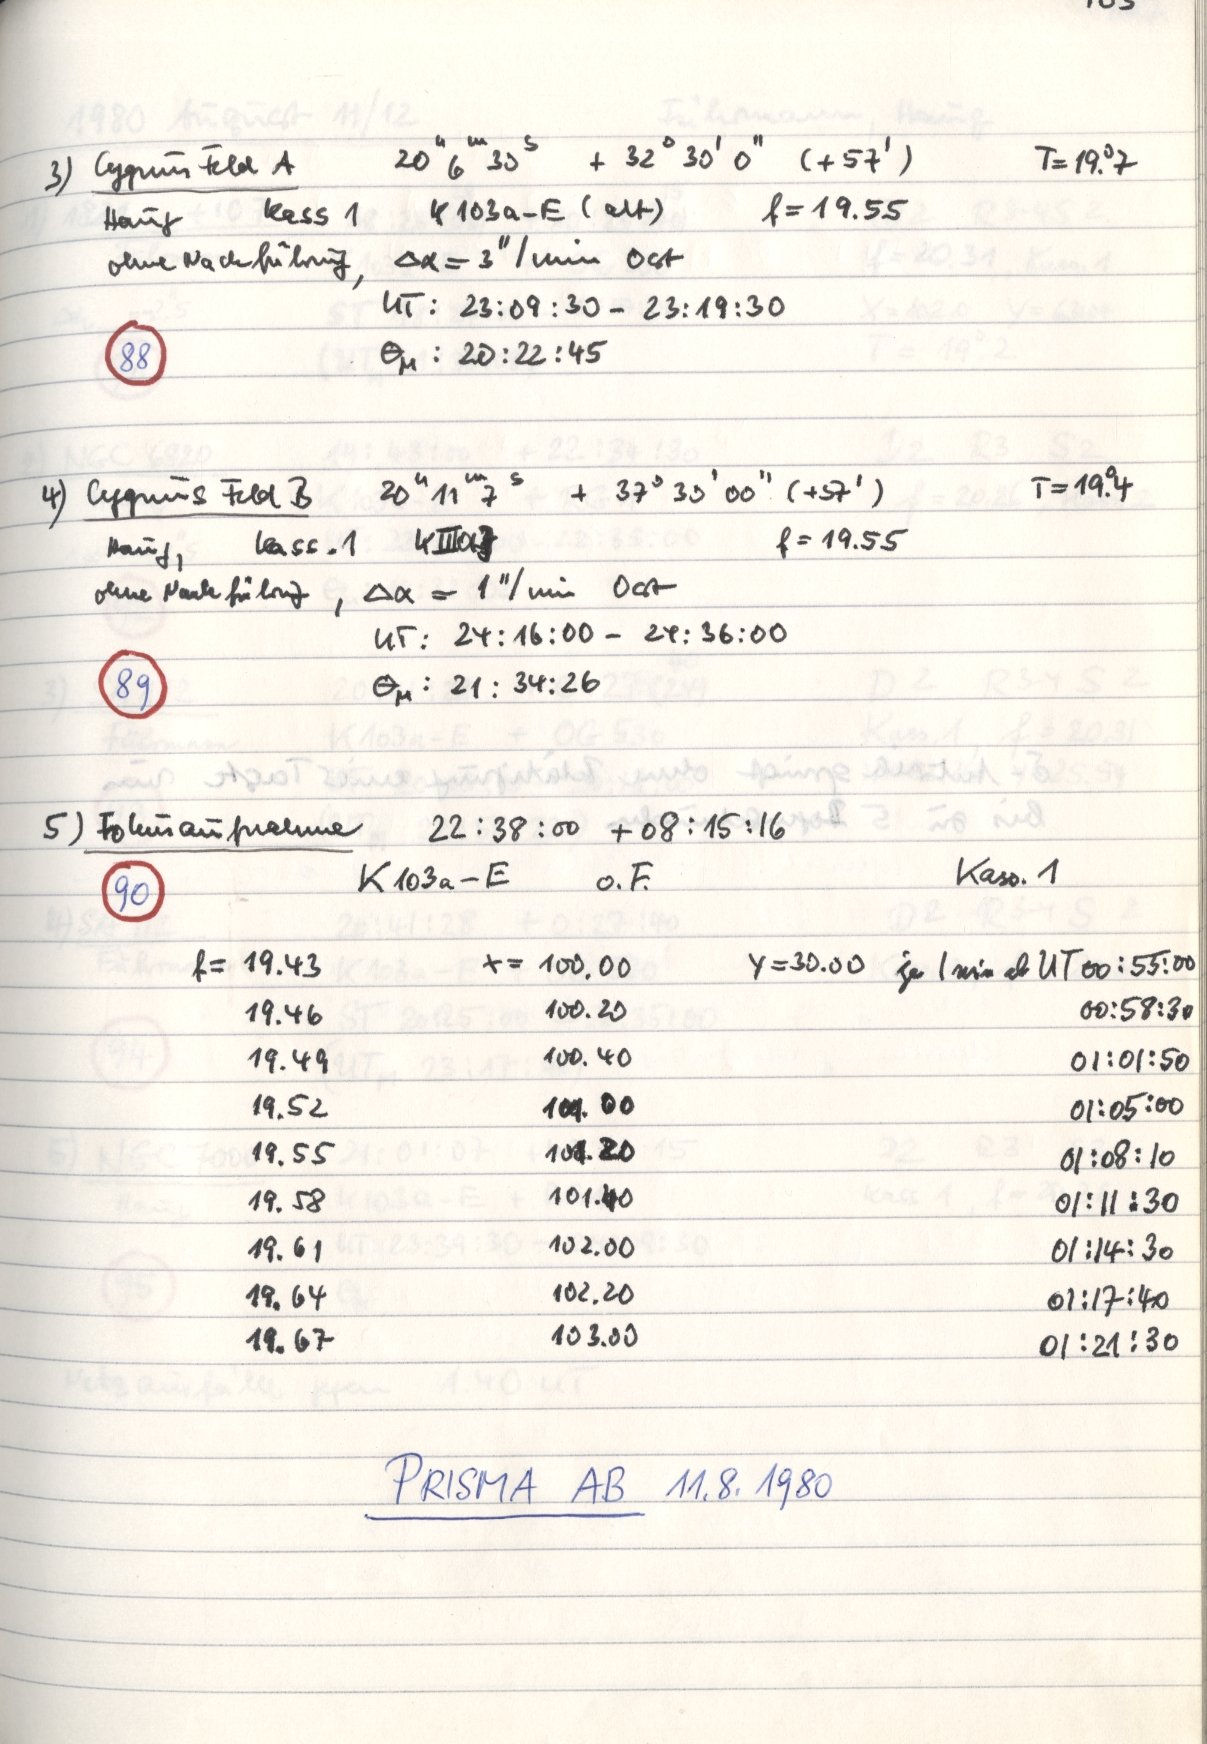 3) Cygnus Feld A 20ʰ 6ᵐ 30ˢ + 32° 30' 0" (+57') T=19.°7
Haug Kass 1 K103a-E (alt) f=19.55
ohne Nachführung, Δα = 3"/min Ost
UT: 23:09:30 - 23:19:30
88 θM: 20:22:45
4) Cygnus Feld B 20ʰ 11ᵐ 7ˢ + 37° 30' 00" (+57') T=19.°4
Haug, Kass.1 f=19.55
ohne Nachführung, Δα = 1"/min Ost
UT: 24:16:00 - 24:36:00
89 θM: 21:34:26
5) Fokusaufnahme 22:38:00 +08:15:16
90 K103a-E o.F. Kass. 1
f= 19.43 x= 100.00 y=30.00 je 1 min ab UT 00:55:00
19.46 100.20 00:58:30
19.49 100.40 01:01:50
19.52 101.00 01:05:00
19.55 101.20 01:08:10
19.58 101.40 01:11:30
19.61 102.00 01:14:30
19.64 102.20 01:17:40
19.67 103.00 01:21:30
PRISMA AB 11.8.1980